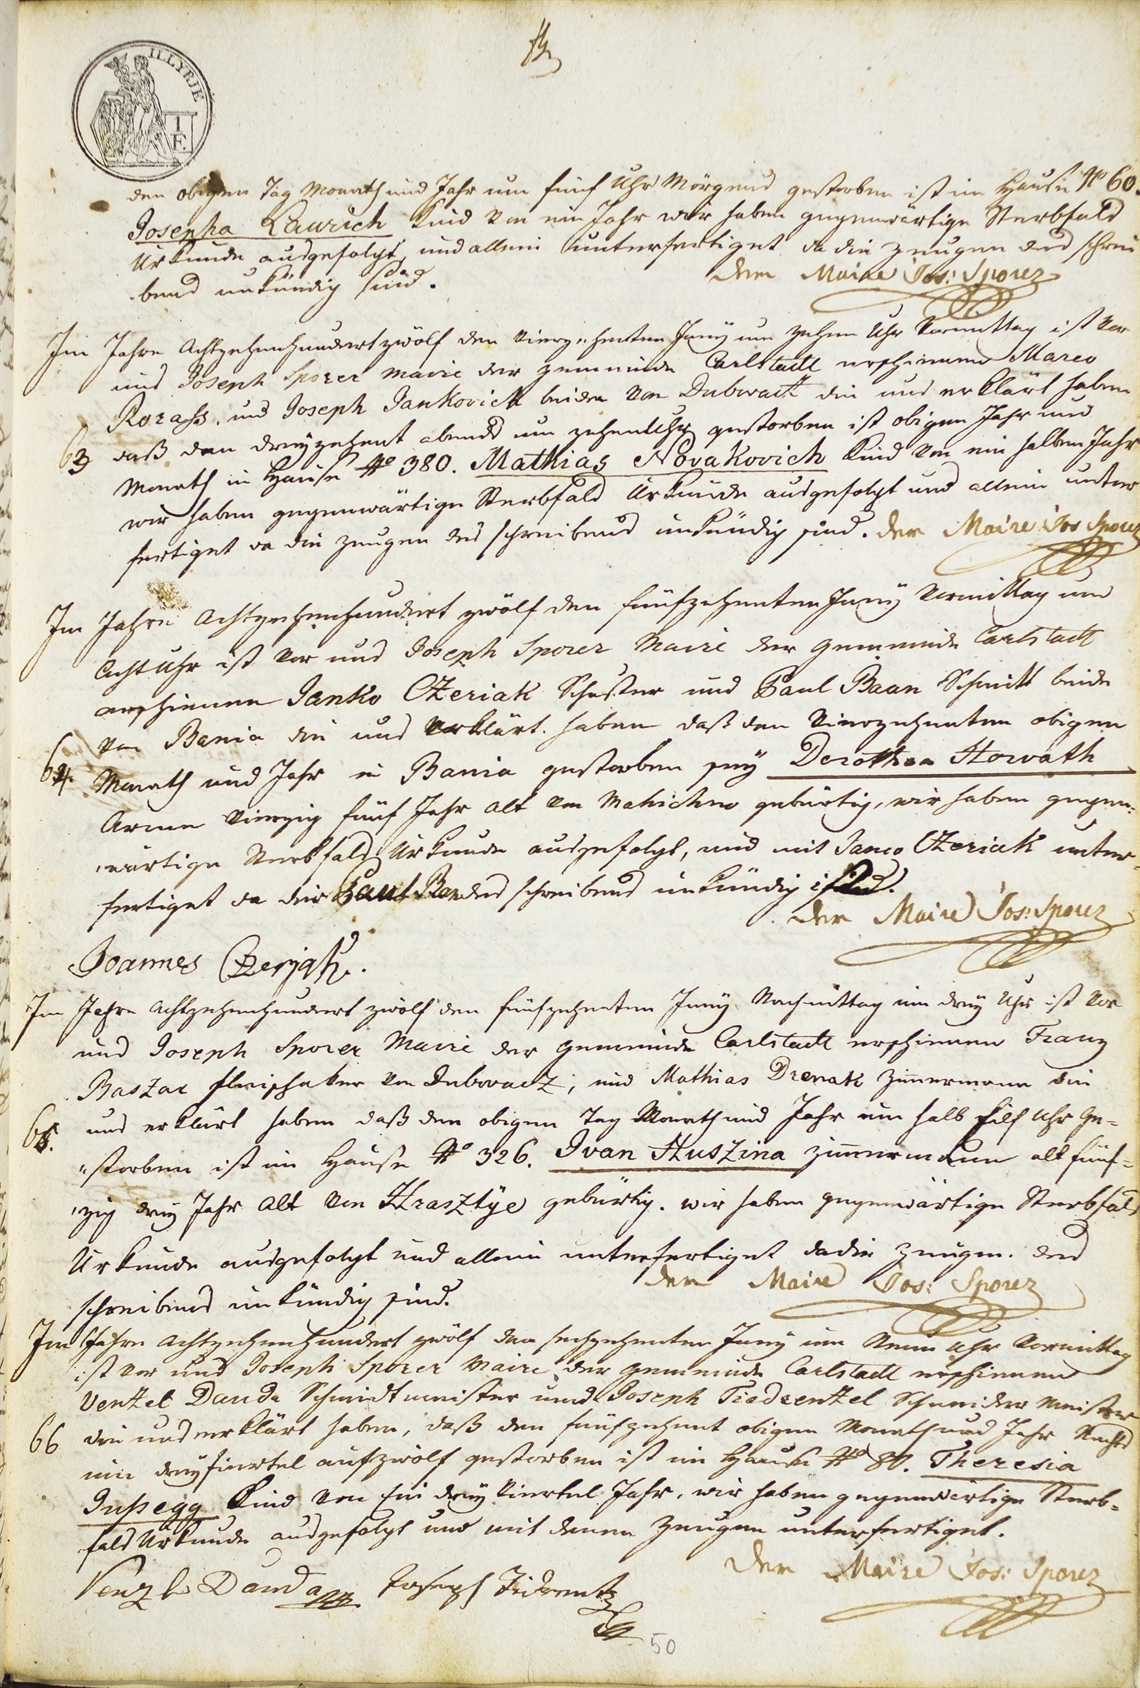 ILLYRIE
T
F.
den obigen Tag Monath und Jahr um fünf Uhr Morgens gestorben ist im Hause No 60.
Josepha Laurich Kind von ein Jahr wir haben gegenwärtige Sterbfald
Urkunde ausgefolgt, und allein unterfertiget da die Zeugen des schrei
bens unkündig sind. der Maire Jos: Sporer
Im Jahre Achtzehenhundertzwölf den Vierzehenten Juny um zehen Uhr Vormittag ist vor
uns Joseph Sporer Maire der gemeinde Carlstadt erschienen Marco
und Joseph Jankovich beide von Dubovacz die uns erklärt haben
63 daß den dreyzehent abends um zehen Uhr gestorben ist obigen Jahr und
Monath in Hause No 380. Mathias Novakovich Kind von ein halben Jahr
wir haben gegenwärtige Sterbfald Urkunde ausgefolgt und allein unter
fertiget da die Zeugen des schreibens unkündig sind. der Maire Jos Sporer
Im Jahre Achtzehenhundert zwölf den fünfzehenten Juny Vormittag um
Acht Uhr ist vor uns Joseph Sporer Maire der gemeinde Carlstadt
erschienen Janko Czeriak Schuster und Paul Baan Schmitt beide
von Bania die uns erklärt haben daß den Vierzehenten obigen
64. Monath und Jahr in Bania gestorben sey Dorothea Horvath
Arme Vierzig fünf Jahr alt von Mahichno gebürtig, wir haben gegen-
wärtige Sterbfald Urkunde ausgefolgt, und mit Janco Czeriak unter-
fertiget da der Paul Baan des schreibens unkündig ist.
der Maire Jos: Sporer
Joannes Czerjak.
Im Jahre Achtzehenhundert zwölf den fünfzehenten Juny Nachmittag um drey Uhr ist vor
uns Joseph Sporer Maire der gemeinde Carlstadt erschienen Franz
Baszar fleischaker von Dubovacz, und Mathias Drenak Zimmermann die
65. uns erklärt haben daß den obigen Tag Monath und Jahr um halb Eilf Uhr ge-
storben ist im Hause No 326. Ivan Huszina Zimmermann alt fünf-
zig drey Jahr alt von Hrasztye gebürtig. wir haben gegenwärtige Sterbfald
Urkunde ausgefolgt und allein unterfertiget da die Zeugen des
schreibens unkündig sind. der Maire Jos: Sporer
Im Jahre Achtzehenhundert zwölf den sechzehenten Juny um Neun Uhr Vormittag
ist vor uns Joseph Sporer Maire der gemeinde Carlstadt erschienen
Ventzel Dauda Schmidtmeister und Joseph Schneider Meister
66 die uns erklärt haben, daß den fünfzehent obigen Monath und Jahr Nachts
um dreyfiertel auf zwölf gestorben ist im Hause No 80. Theresia
Kind von ein drey Viertel Jahr, wir haben gegenwärtige Sterb-
fald Urkunde ausgefolgt und mit denen Zeugen unterfertiget.
der Maire Jos: Sporer
Venzl Dauda Joseph
50